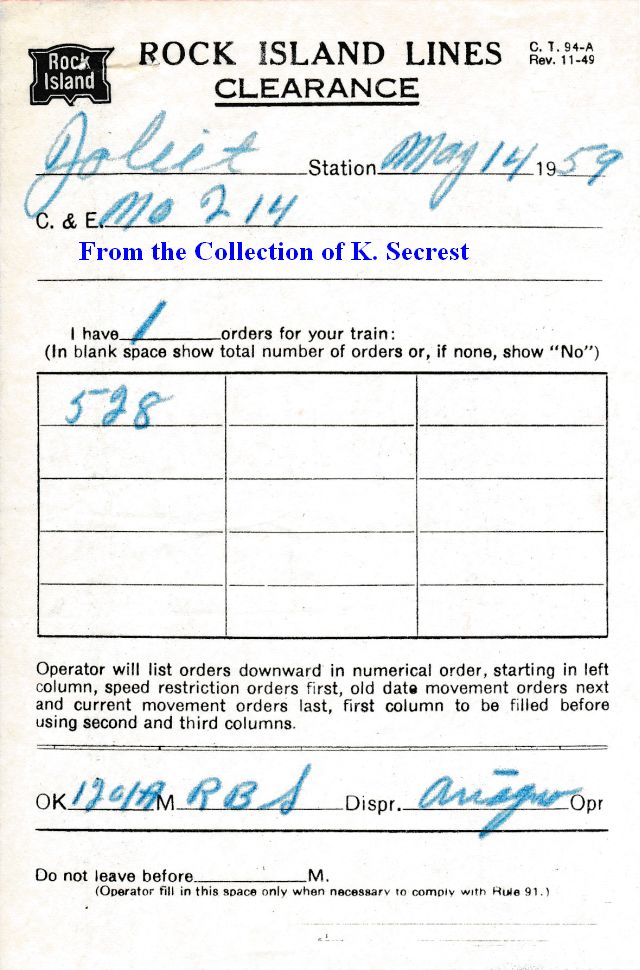 Rock Island
ROCK ISLAND LINES
C. T. 94-A
Rev. 11-49
CLEARANCE
Joliet Station May 14 1959
C. & E. No 214
From the Collection of K. Secrest
I have 1 orders for your train:
(In blank space show total number of orders or, if none, show "No")
528
Operator will list orders downward in numerical order, starting in left
column, speed restriction orders first, old date movement orders next
and current movement orders last, first column to be filled before
using second and third columns.
OK 1201A M RBS Dispr. Opr
Do not leave before M.
(Operator fill in this space only when necessary to comply with Rule 91.)